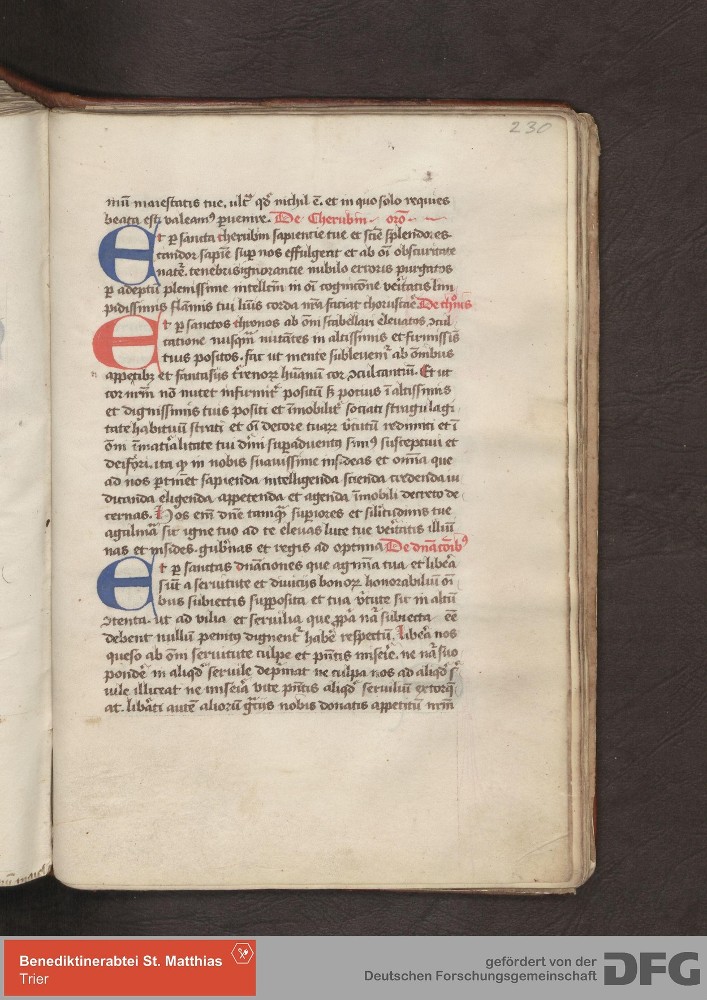 230
mū maiestatis tue, ult᷑ qd̓ nichil ē. et in quo solo requies
beata est, valeam᷒ ꝑuenire. De Cherubin oro᷑
Et ꝑ sancta cherubin sapientie tue et sciē splendores
candor sapiē suꝑ nos effulgeat et ab oī obscuritate
nat̓e. tenebris ignorantie nubilo erroris purgatos
ꝑ adeptū plenissime intellcm̄ in oī cognicōne veritatis lim
pidissimis flāmis tui lūis corda nr̄a faciat choruscar̓e De thōis
Et ꝑ sanctos thronos ab om̄i scabellari eleuatos ꝯcul
catione nusqm̄ nutātes in altissimis et firmissīs
tuis positos. fac ut mente subleuem᷑ ab om̄ibus
appetibꝫ et fantasijs t̓renoꝝ hūanū cor ꝯculcantiū. Et ut
cor nr̄m nō nutet infirmit̓ positū sꝫ potius ī altissimis
et dignissimis tuis positi et īmobilit̓ sociati
tate habituū strati et oī decore tuaꝝ v̓tutū redimiti et ī
om̄i īmat̓ialitate tui dīni suꝑaduent᷒ sim᷒ susceptiui et
deifori. ita ꝙ in nobis suauissime insideas et omīa que
ad nos ꝑtinēt sapienda intelligenda scienda credenda iu
dicanda eligenda appetenda et agenda īmobili decreto de
cernas. Hos em̄ dn̄e tamqm̄ suꝑiores et silitudinis tue
agalmata sic igne tuo ad te eleuas luce tue v̓itatis illūi
nas et p̓sides. gub̓nas et regis ad optima De dn̄acōib᷒
Et ꝑ sanctas dn̄aciones que agmīa tua et libera
sūt a seruitute et diuicijs bonoꝝ honorabiliū oī
bus subiectis supposita et tua v̓tute sic in altū
ꝯtenta. ut ad vilia et seruilia que ꝓpa nā subiecta eē
debent nullū penit᷒ dignent᷑ habe̓ respectū. libera nos
queso ab om̄i seruitute culpe et pn̄tis miserie. ne nā suo
ponde̓ in aliqd̓ seruile dep̓mat ne culpa nos ad aliqd̓ s̓
uile illiceat ne miseria vite pn̄tis aliqd̓ seruiliū extorq̄
at. liberati autē alioꝝ gr̄ijs nobis donatis appetitū nr̄m
Benediktinerabtei St. Matthias
Trier
gefördert von der
Deutschen Forschungsgemeinschaft
DFG